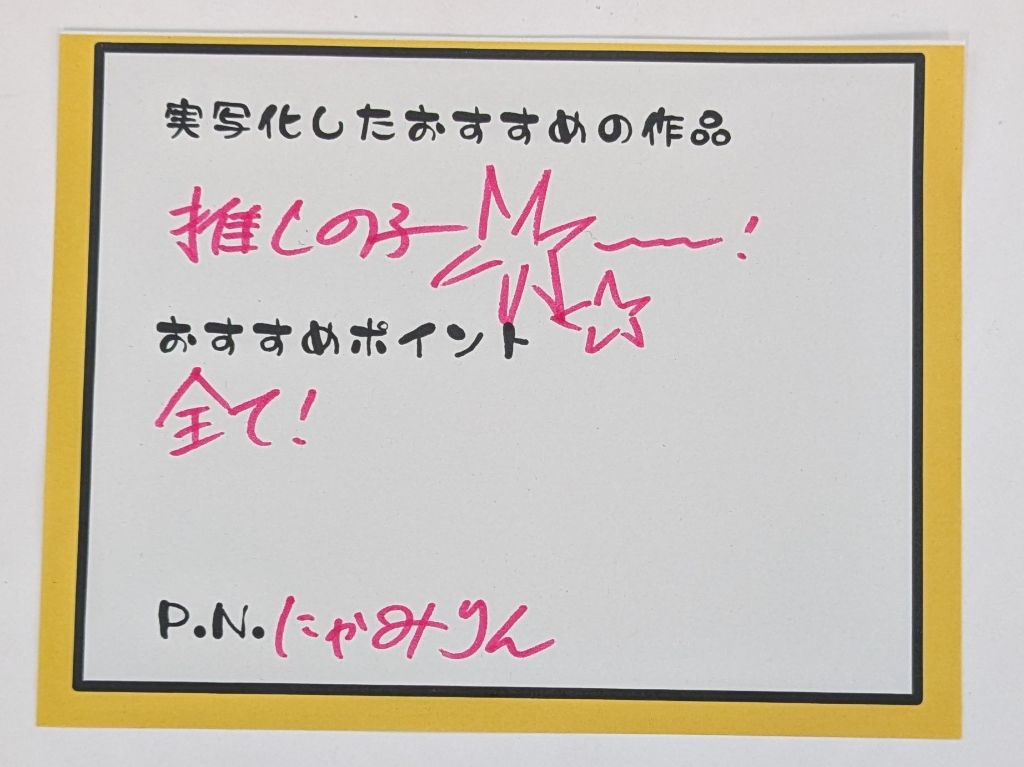 実写化したおすすめの作品
推しの子ー〜!
おすすめポイント
全て!
P.N.にゃみりん